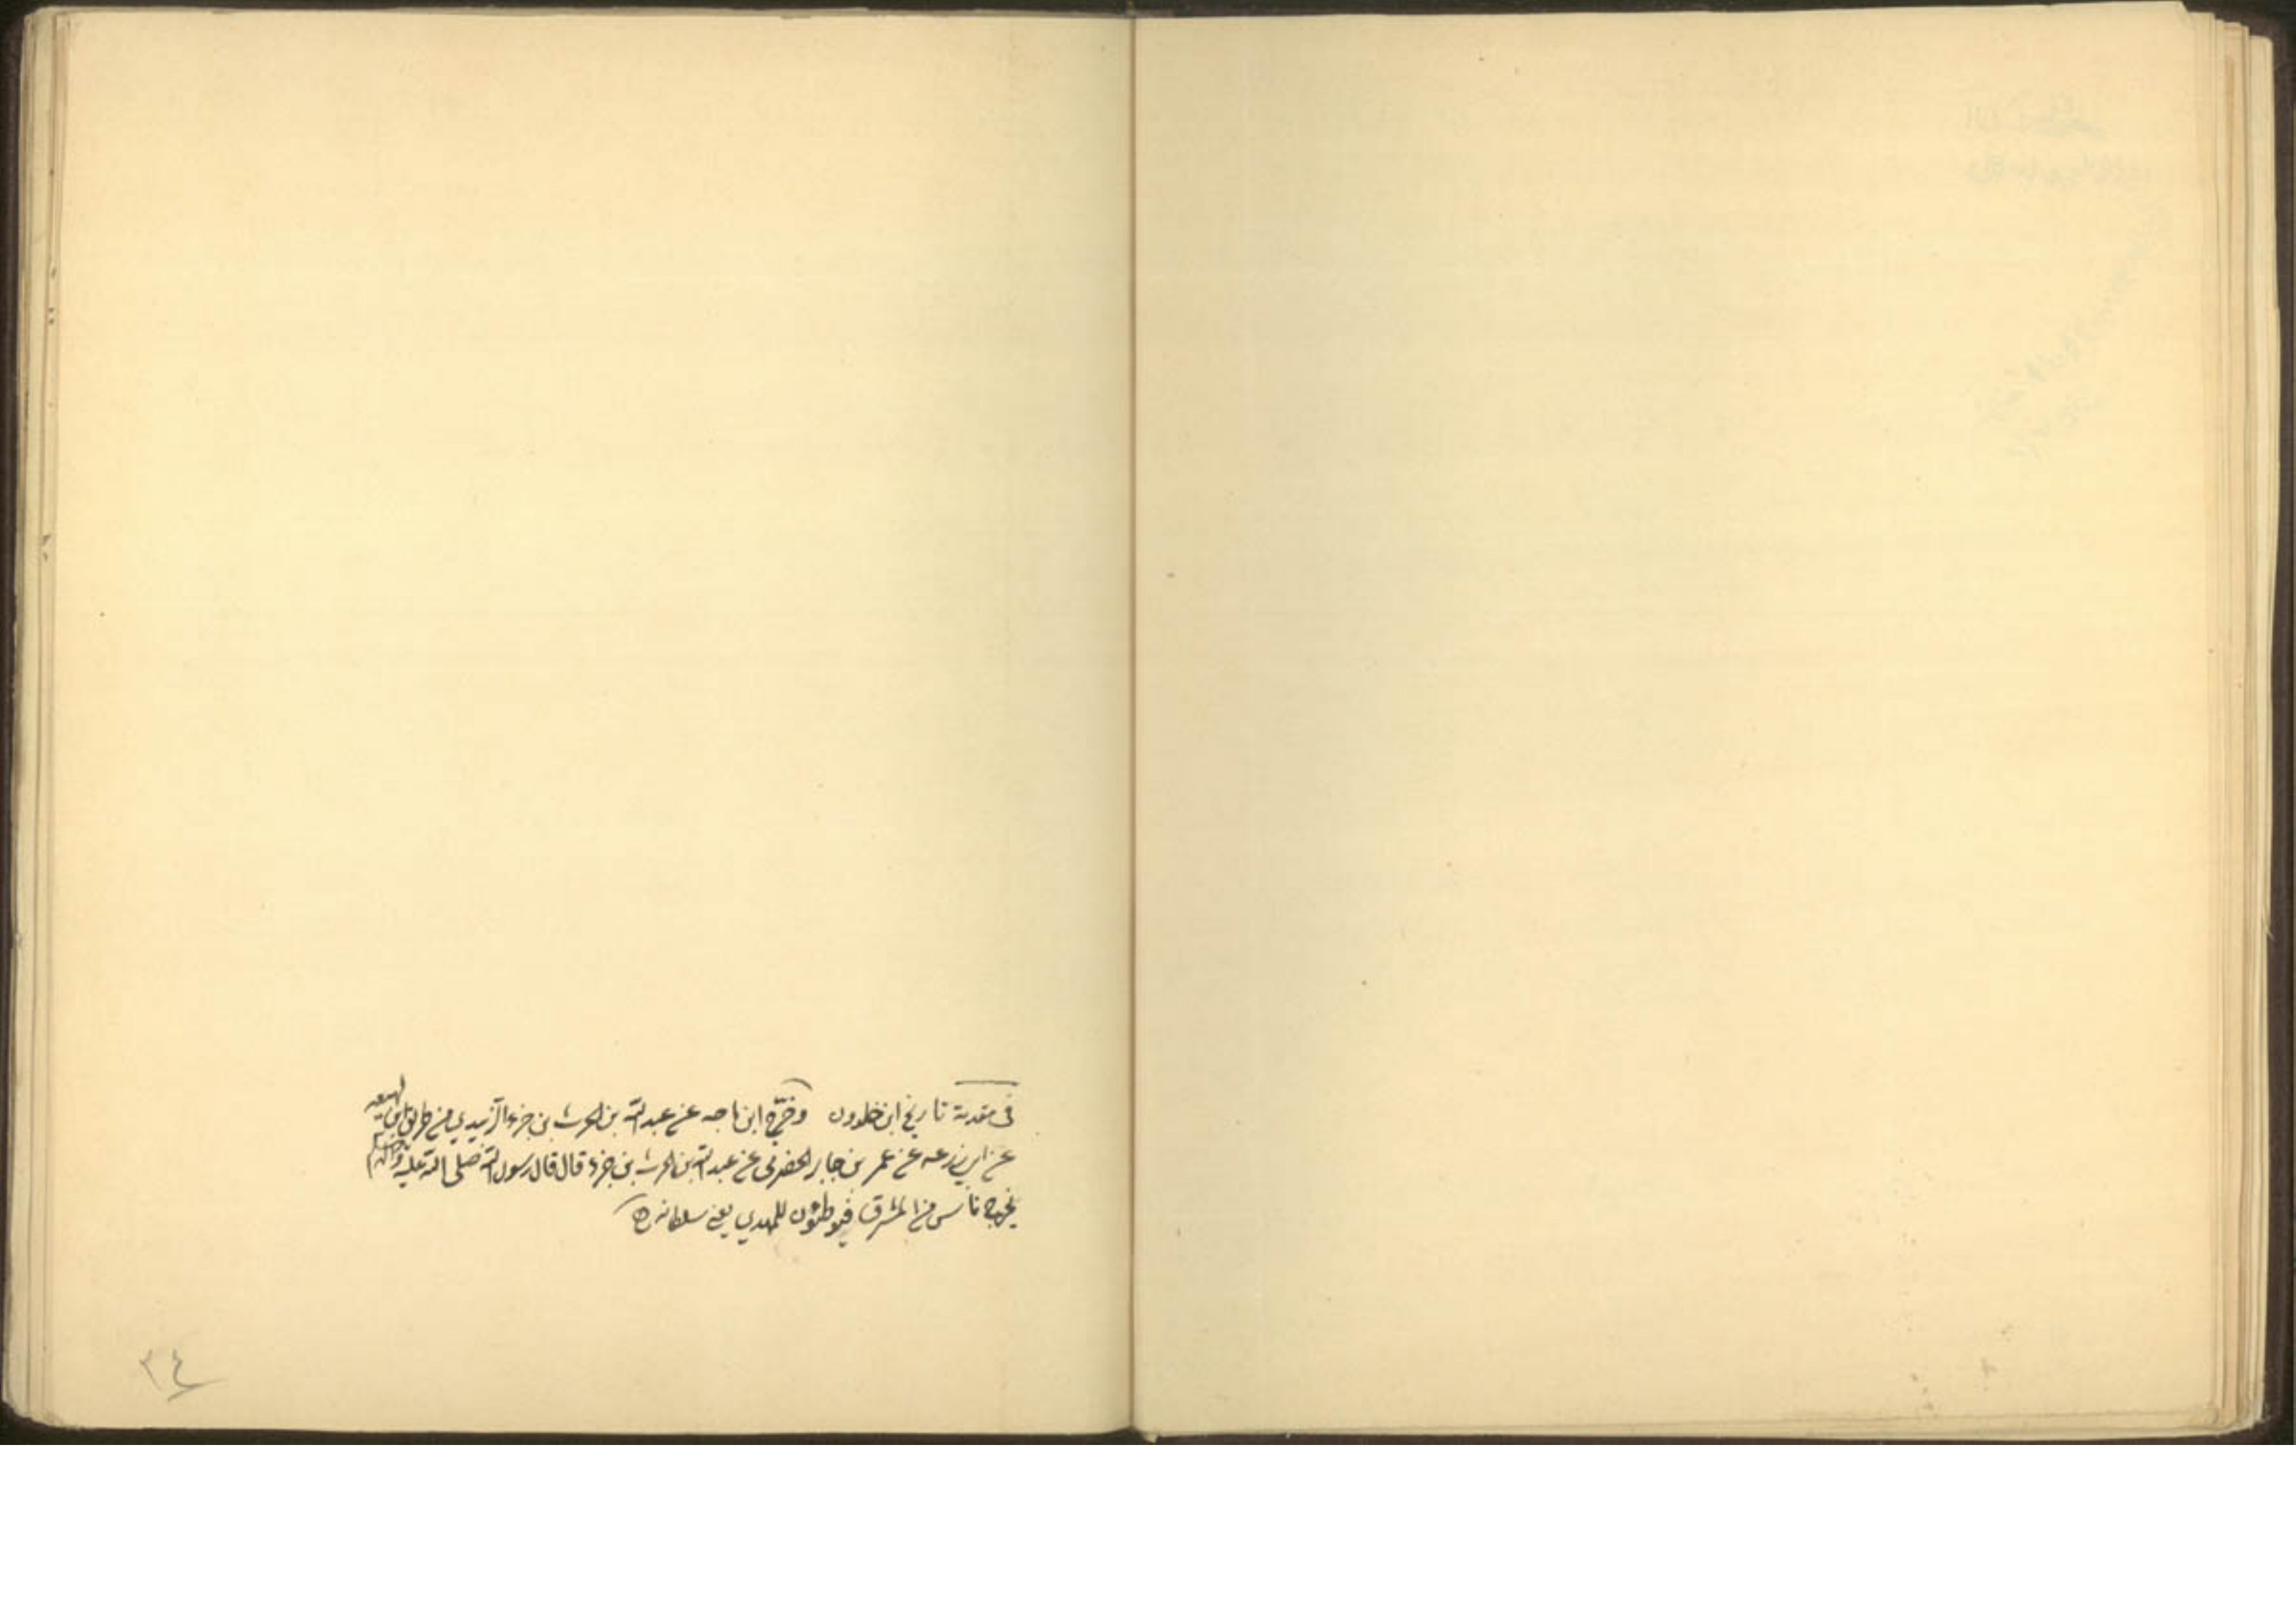 في مقدمة تاريخ ابن خلدون وخرّج ابن ماجه عن عبد الله بن الحرث بن جزء الزبيدي من طريق ابن لهيعه
عن ابي زرعه عن عمر بن جابر الحضرمي عن عبد الله بن الحرث بن جزء قال قال رسول الله صلى الله عليه وآله وسلم
يخرج ناس من المشرق فيوطئون للمهدي يعني سلطانه
٣٤